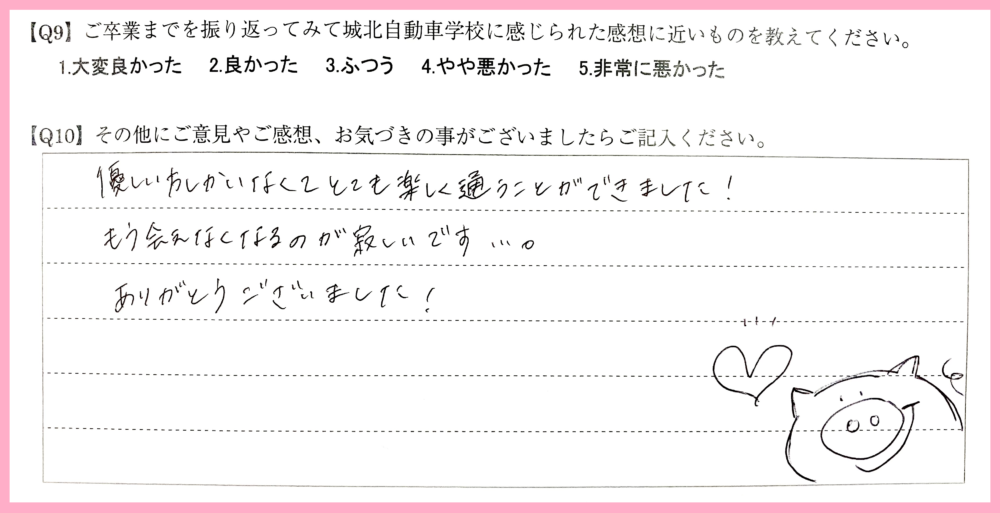 【Q9】ご卒業までを振り返ってみて城北自動車学校に感じられた感想に近いものを教えてください。
1.大変良かった 2.良かった 3.ふつう 4.やや悪かった 5.非常に悪かった
【Q10】その他にご意見やご感想、お気づきの事がございましたらご記入ください。
優しい方しかいなくてとても楽しく通うことができました!
もう会えなくなるのが寂しいです…。
ありがとうございました!